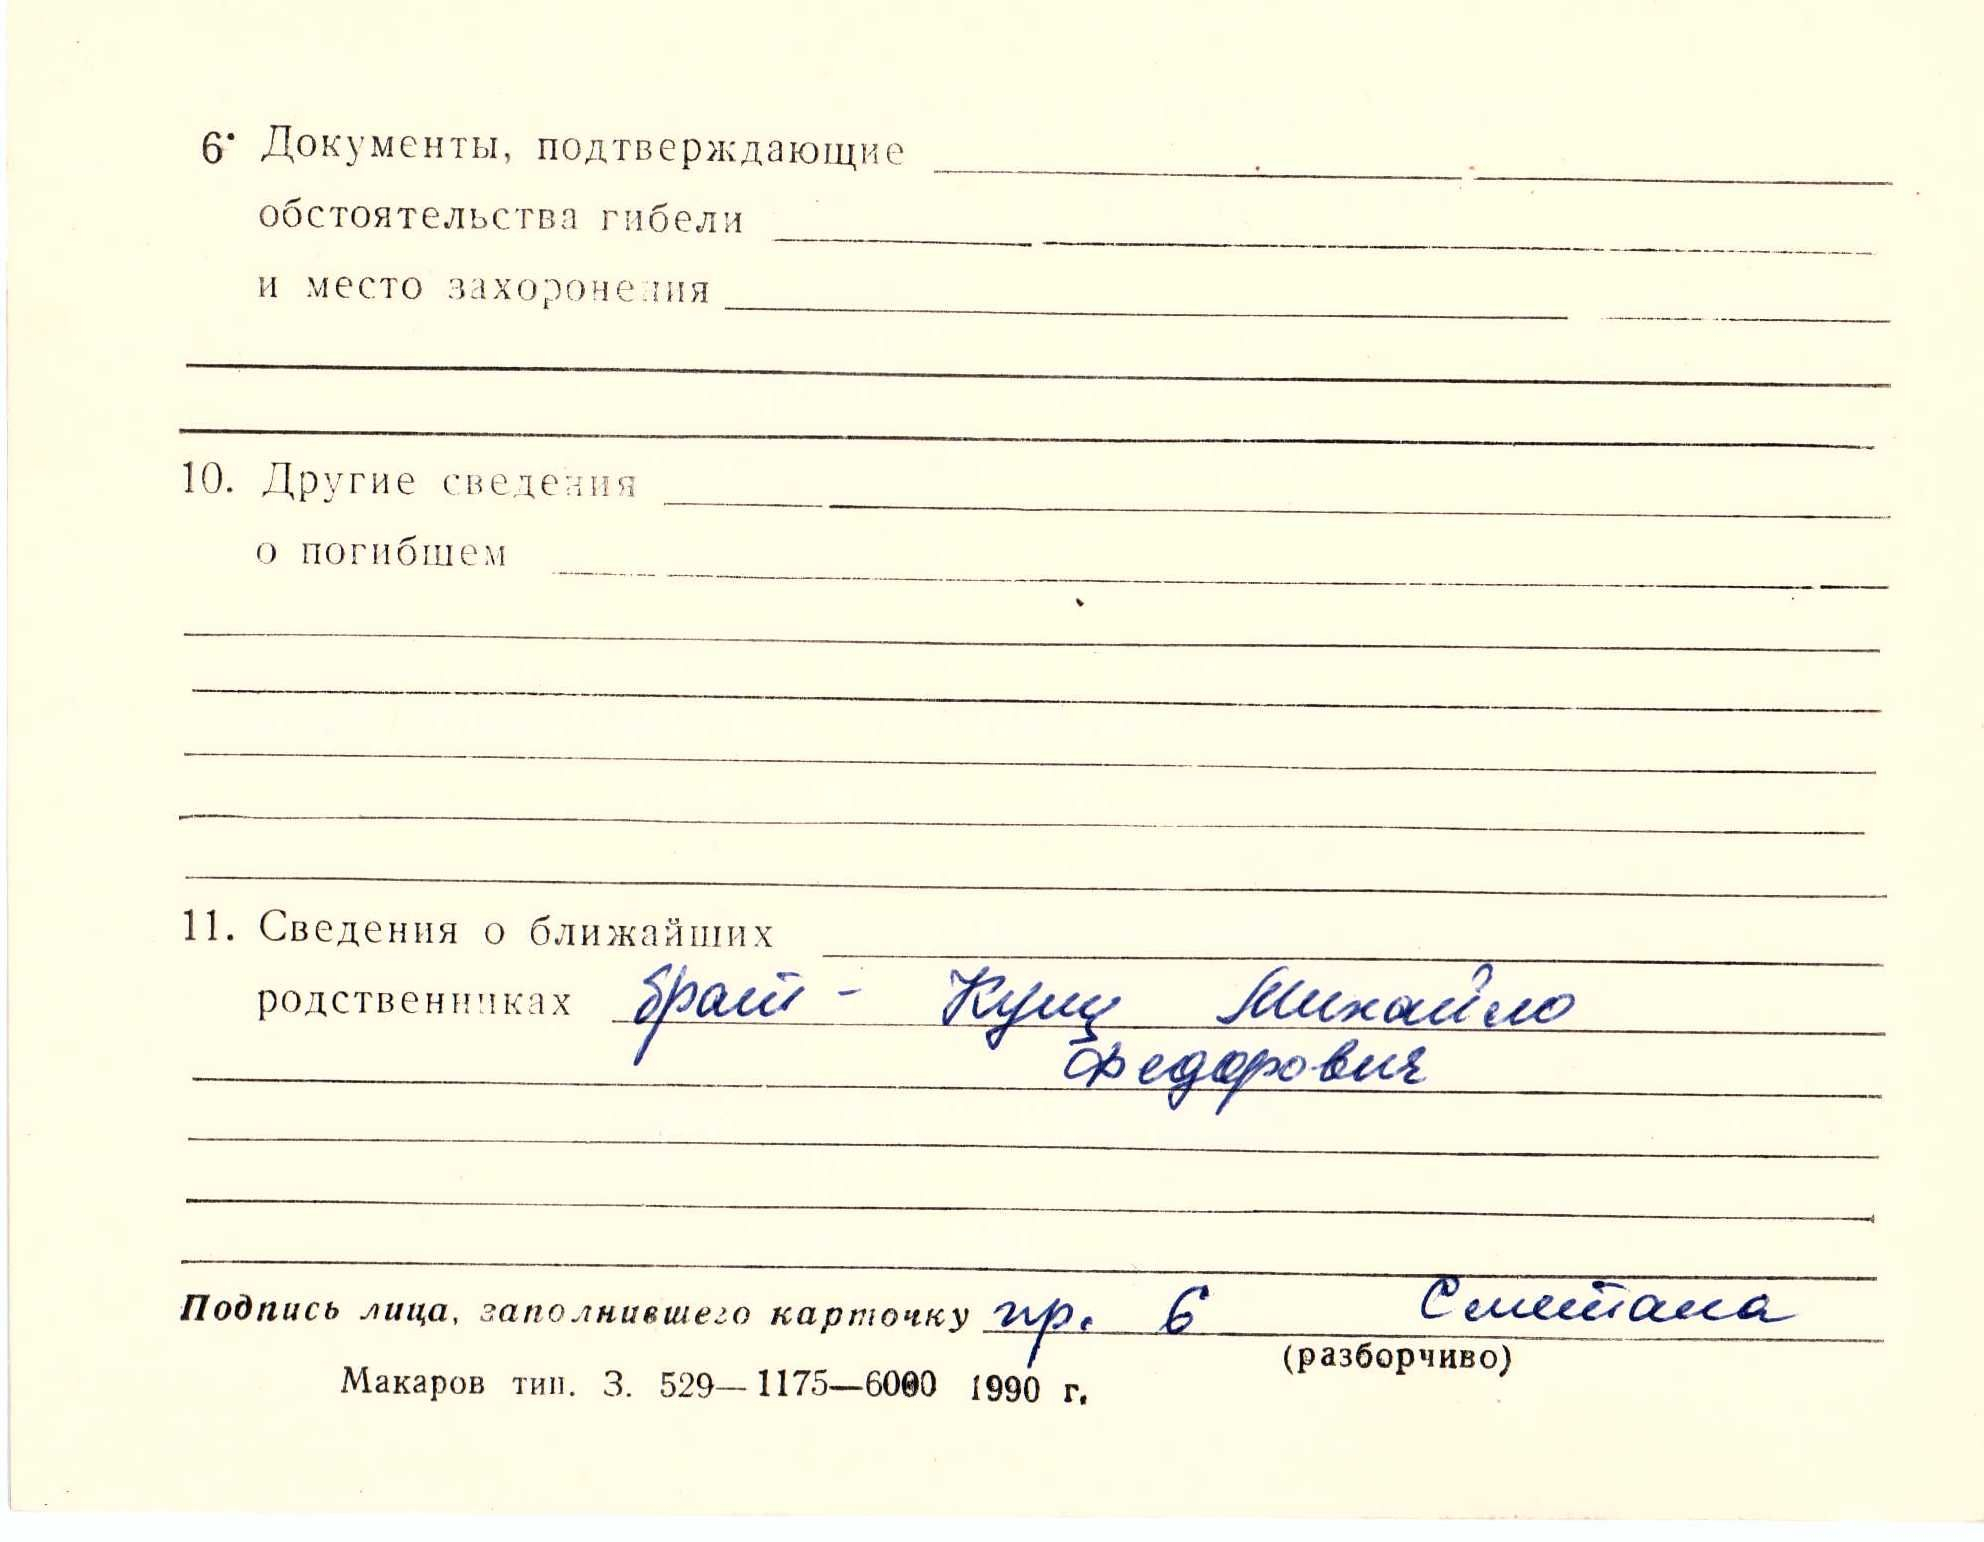 6. Документы, подтверждающие
обстоятельства гибели
и место захоронения
10. Другие сведения
о погибшем
11. Сведения о ближайших
родственниках брат - Кущ Михайло
Федорович
Подпись лица, заполнившего карточку пр. 6 Сметана
(разборчиво)
Макаров тип. З. 529—1175—6000 1990 г.